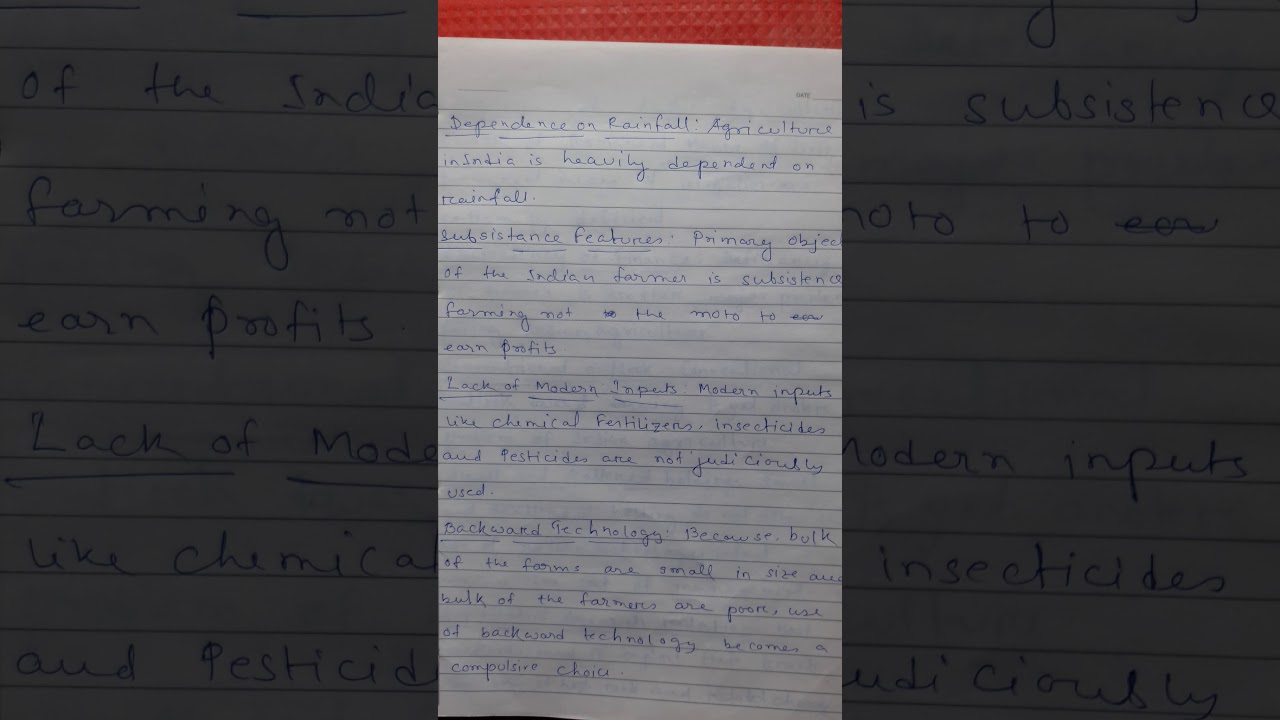 DATE
Dependence on Rainfall: Agriculture
in India is heavily dependent on
rainfall.
Subsistance Features: Primary Objec
of the Indian farmer is subsistence
farming not the moto to
earn profits.
Lack of Modern Inputs: Modern inputs
like chemical Fertilizers, insecticides
and Pesticides are not judiciously
used.
Backward Technology: Because, bulk
of the farms are small in size and
bulk of the farmers are poor, use
of backward technology becomes a
compulsive choice.